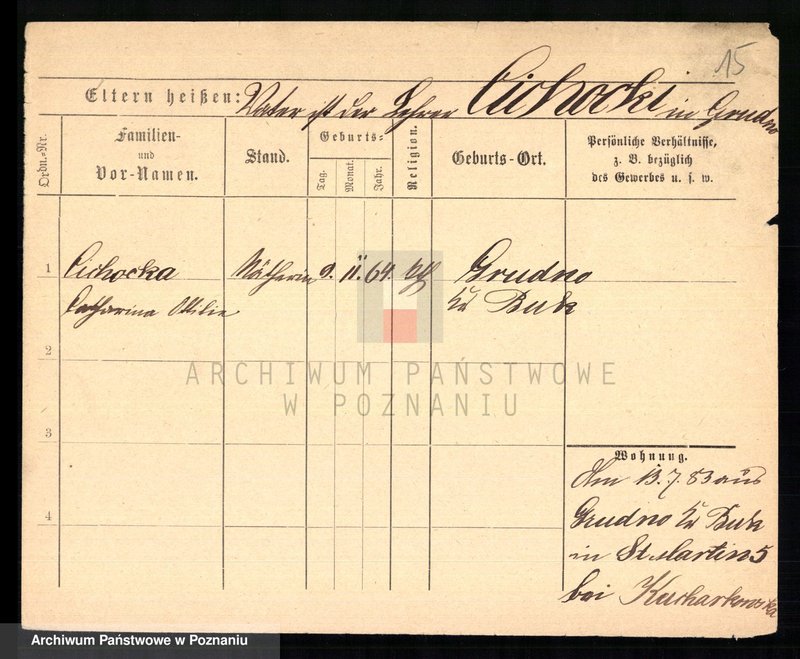 15
Eltern heißen: Vater ist der Lehrer Cichocki in Grudno
Ordn.-Nr.
Familien-
und
Vor-Namen.
Stand.
Geburts-
Tag.
Monat.
Jahr.
Religion.
Geburts-Ort.
Persönliche Verhältnisse,
z. B. bezüglich
des Gewerbes u. s. w.
1 Cichocka Nätherin 9. 11. 64. kth Grudno
Catharina Ottilie Kr Buk
2
ARCHIWUM PAŃSTWOWE
W POZNANIU
3
Wohnung.
Am 13.7.83 aus
Grudno Kr Buk
in St Martin 5
bei Kucharkowska
4
Archiwum Państwowe w Poznaniu